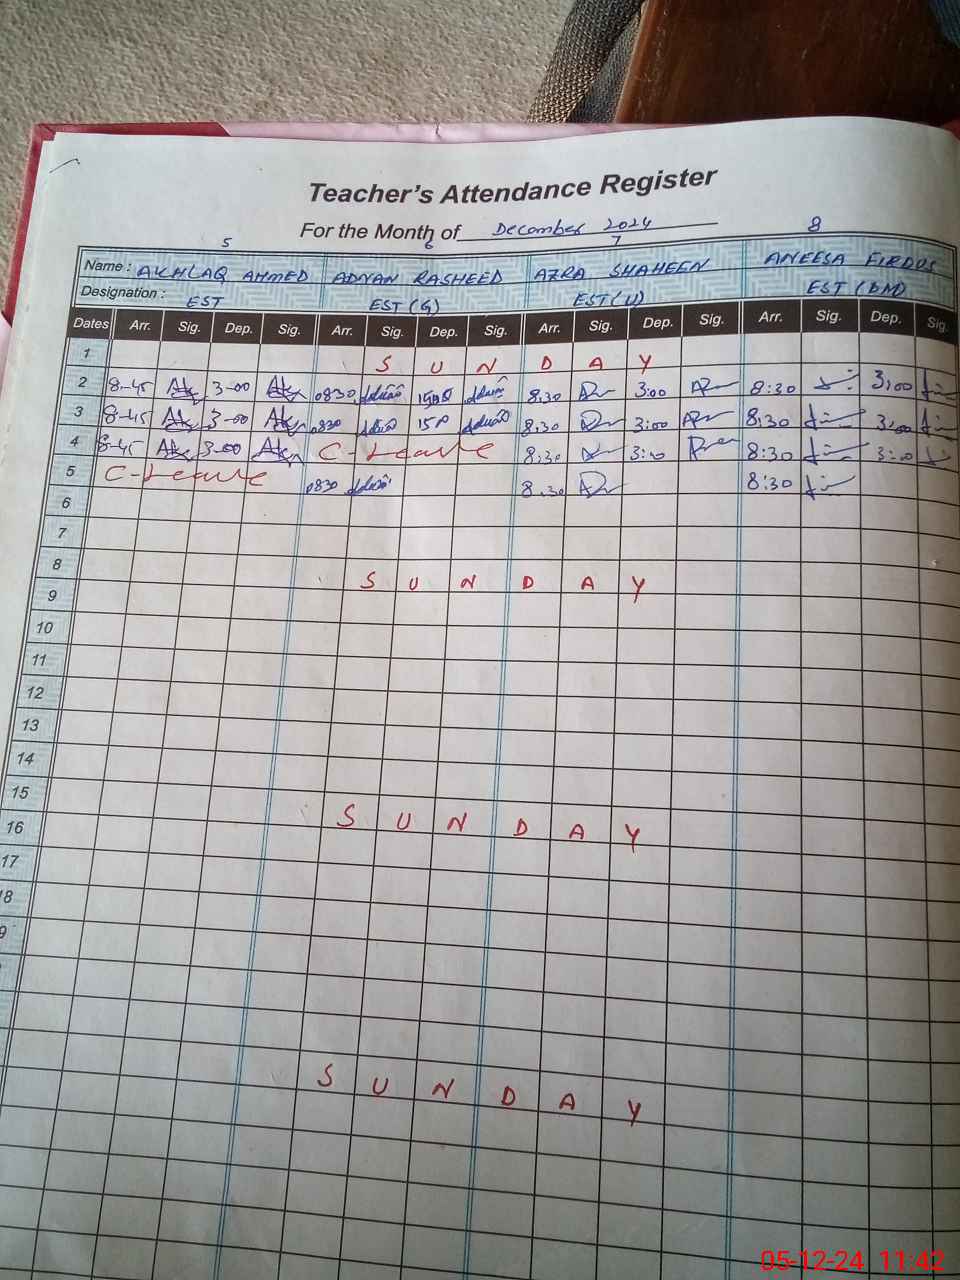 Teacher's Attendance Register
For the Month of December 2024
5 6 7 8
Name : AKHLAQ AHMED ADNAN RASHEED AZRA SHAHEEN ANEESA FIRDOS
Designation : EST EST (G) EST (U) EST (DM)
Dates Arr. Sig. Dep. Sig. Arr. Sig. Dep. Sig. Arr. Sig. Dep. Sig. Arr. Sig. Dep. Sig.
1 S U N D A Y
2 8-45 3-00 0830 1500 8.30 3:00 8:30 3:00
3 8-45 3-00 0830 8.30 3:00 8:30 3:00
4 8-45 3-00 C-Leave 8:30 3:00 8:30 3:00
5 C-Leave 0830 8.30 8:30
6
7
8 S U N D A Y
9
10
11
12
13
14
15 S U N D A Y
16
17
S U N D A Y
05-12-24 11:42